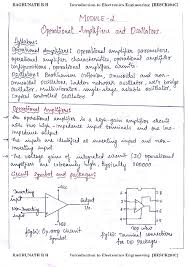 RAGHUNATH B H Introduction to Electronics Engineering [BESCK204C]
MODULE-2
Operational Amplifiers and Oscillators.
Syllabus:
Operational Amplifiers: Operational amplifier parameters,
operational amplifier characteristics, operational amplifier
configurations, operational amplifier circuits.
Oscillators: Barkhausen Criterion, sinusoidal and non-
sinusoidal oscillators, Ladder network oscillator, wein bridge
oscillator, multivibrators, single-stage astable oscillator,
crystal controlled oscillators.
Operational Amplifiers
* An operational amplifier is a high gain amplifier circuit
with two high-impedance input terminals and one low
impedance output.
* The inputs are identified as inverting input and non-
inverting input.
* The voltage gain of integrated circuit (IC) operational
amplifier is extremely high, typically 200000
Circuit Symbol and packages:
Inverting
input
Output
Non-inverting
input
Op-amp circuit
Symbol
Terminal connections
for DIP packages
RAGHUNATH B H Introduction to Electronics Engineering [BESCK204C]